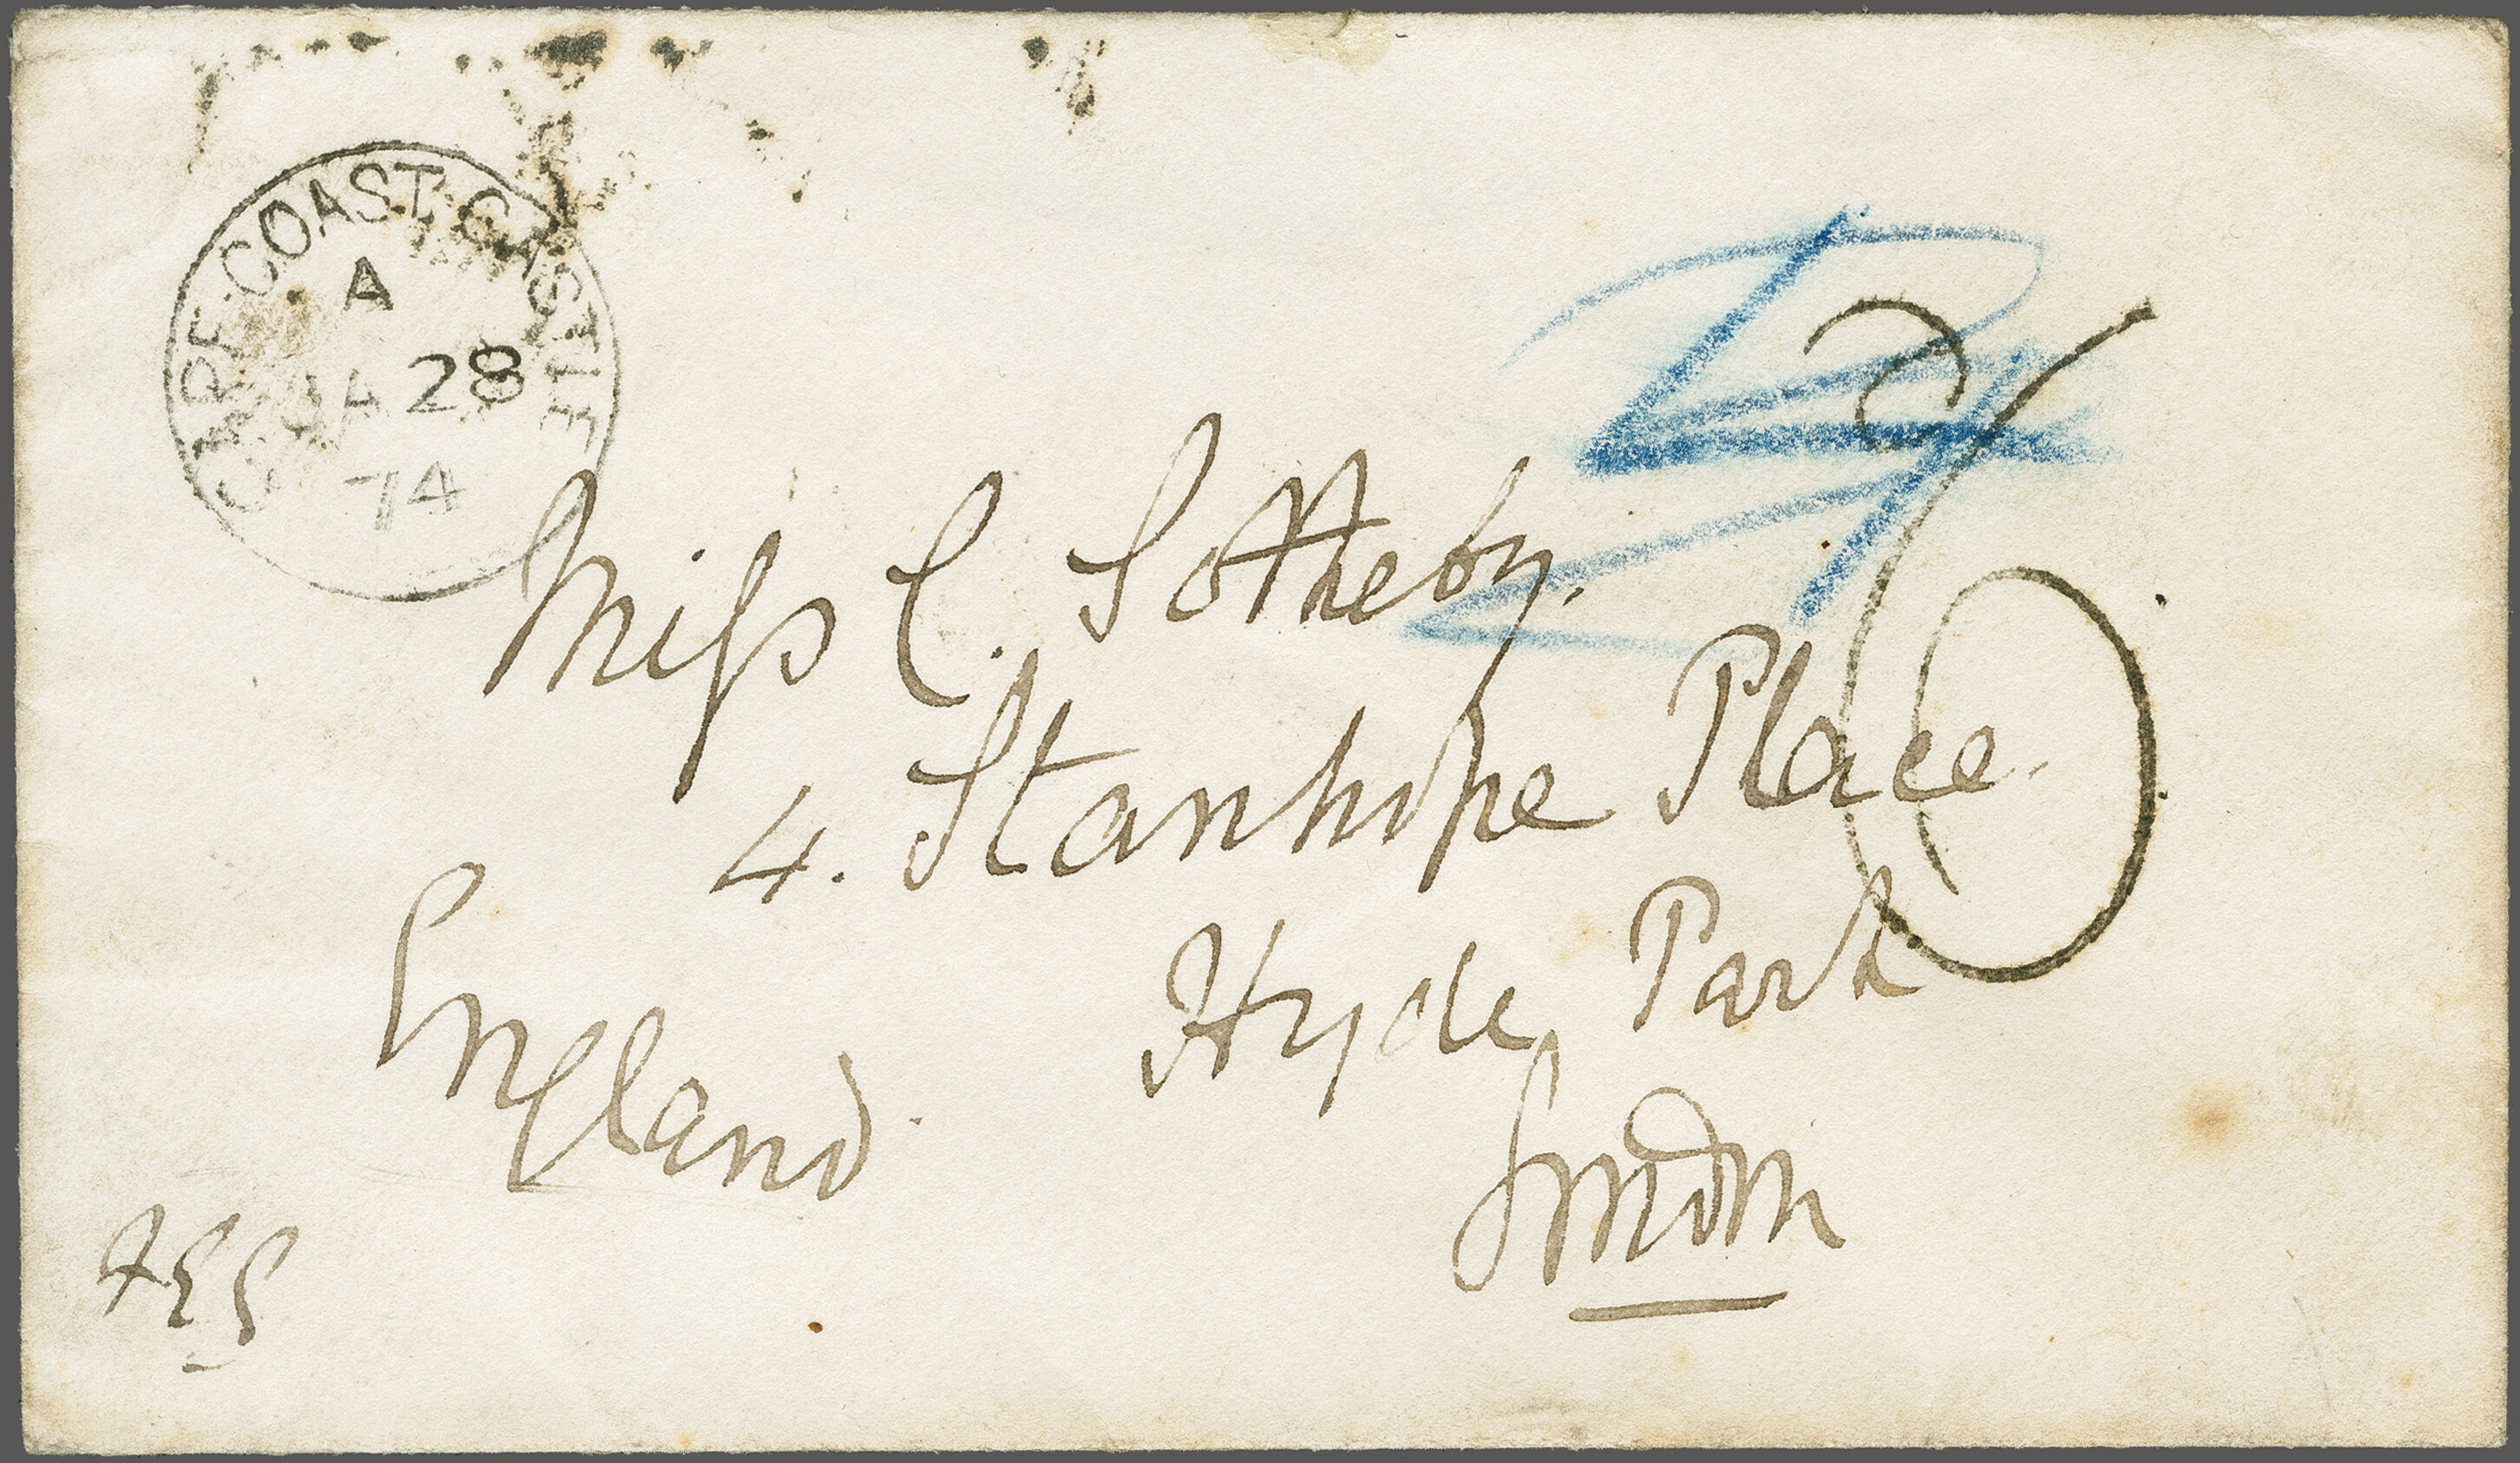 CAPE·COAST·CASTLE
A
JA 28
74
Miss C. Sotheby.
4. Stanhope Place.
Hyde Park
London
England.